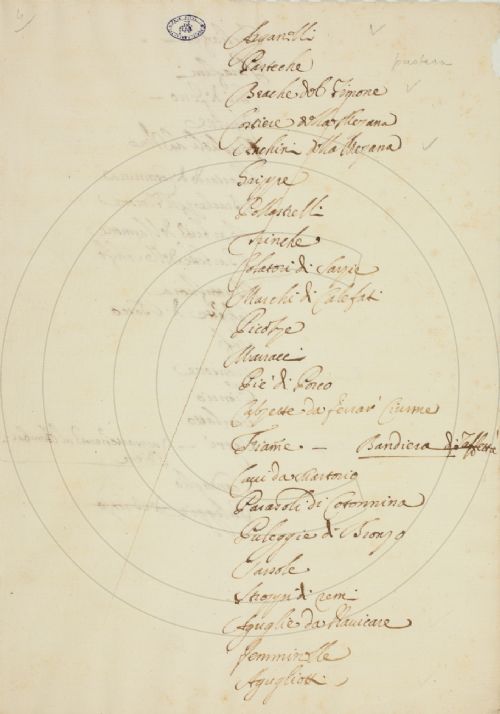 4
Arganelli
Pasteche
pasteca
Brache del Timone
Costiere della Mezana
Anchini della Mezana
Grippie
Pollastrelli
Trinche
Colatori di Sarzie
Marchi di Calefati
Picozze
Manacci
Piè di Porco
Calzette da ferrar Ciurme
Fiame — Bandiera di Taffettà
Capi da Martorio
Parasoli di Cotonnina
Puleggie di Bronzo
Sassole
Stroppi di remi
Aguglie da Navicare
Femminelle
Agugliotti